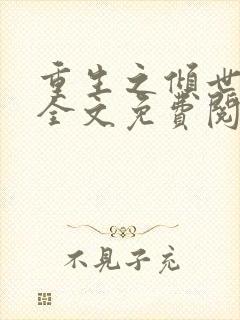 重生之傾世
全文免費閱
不見子充